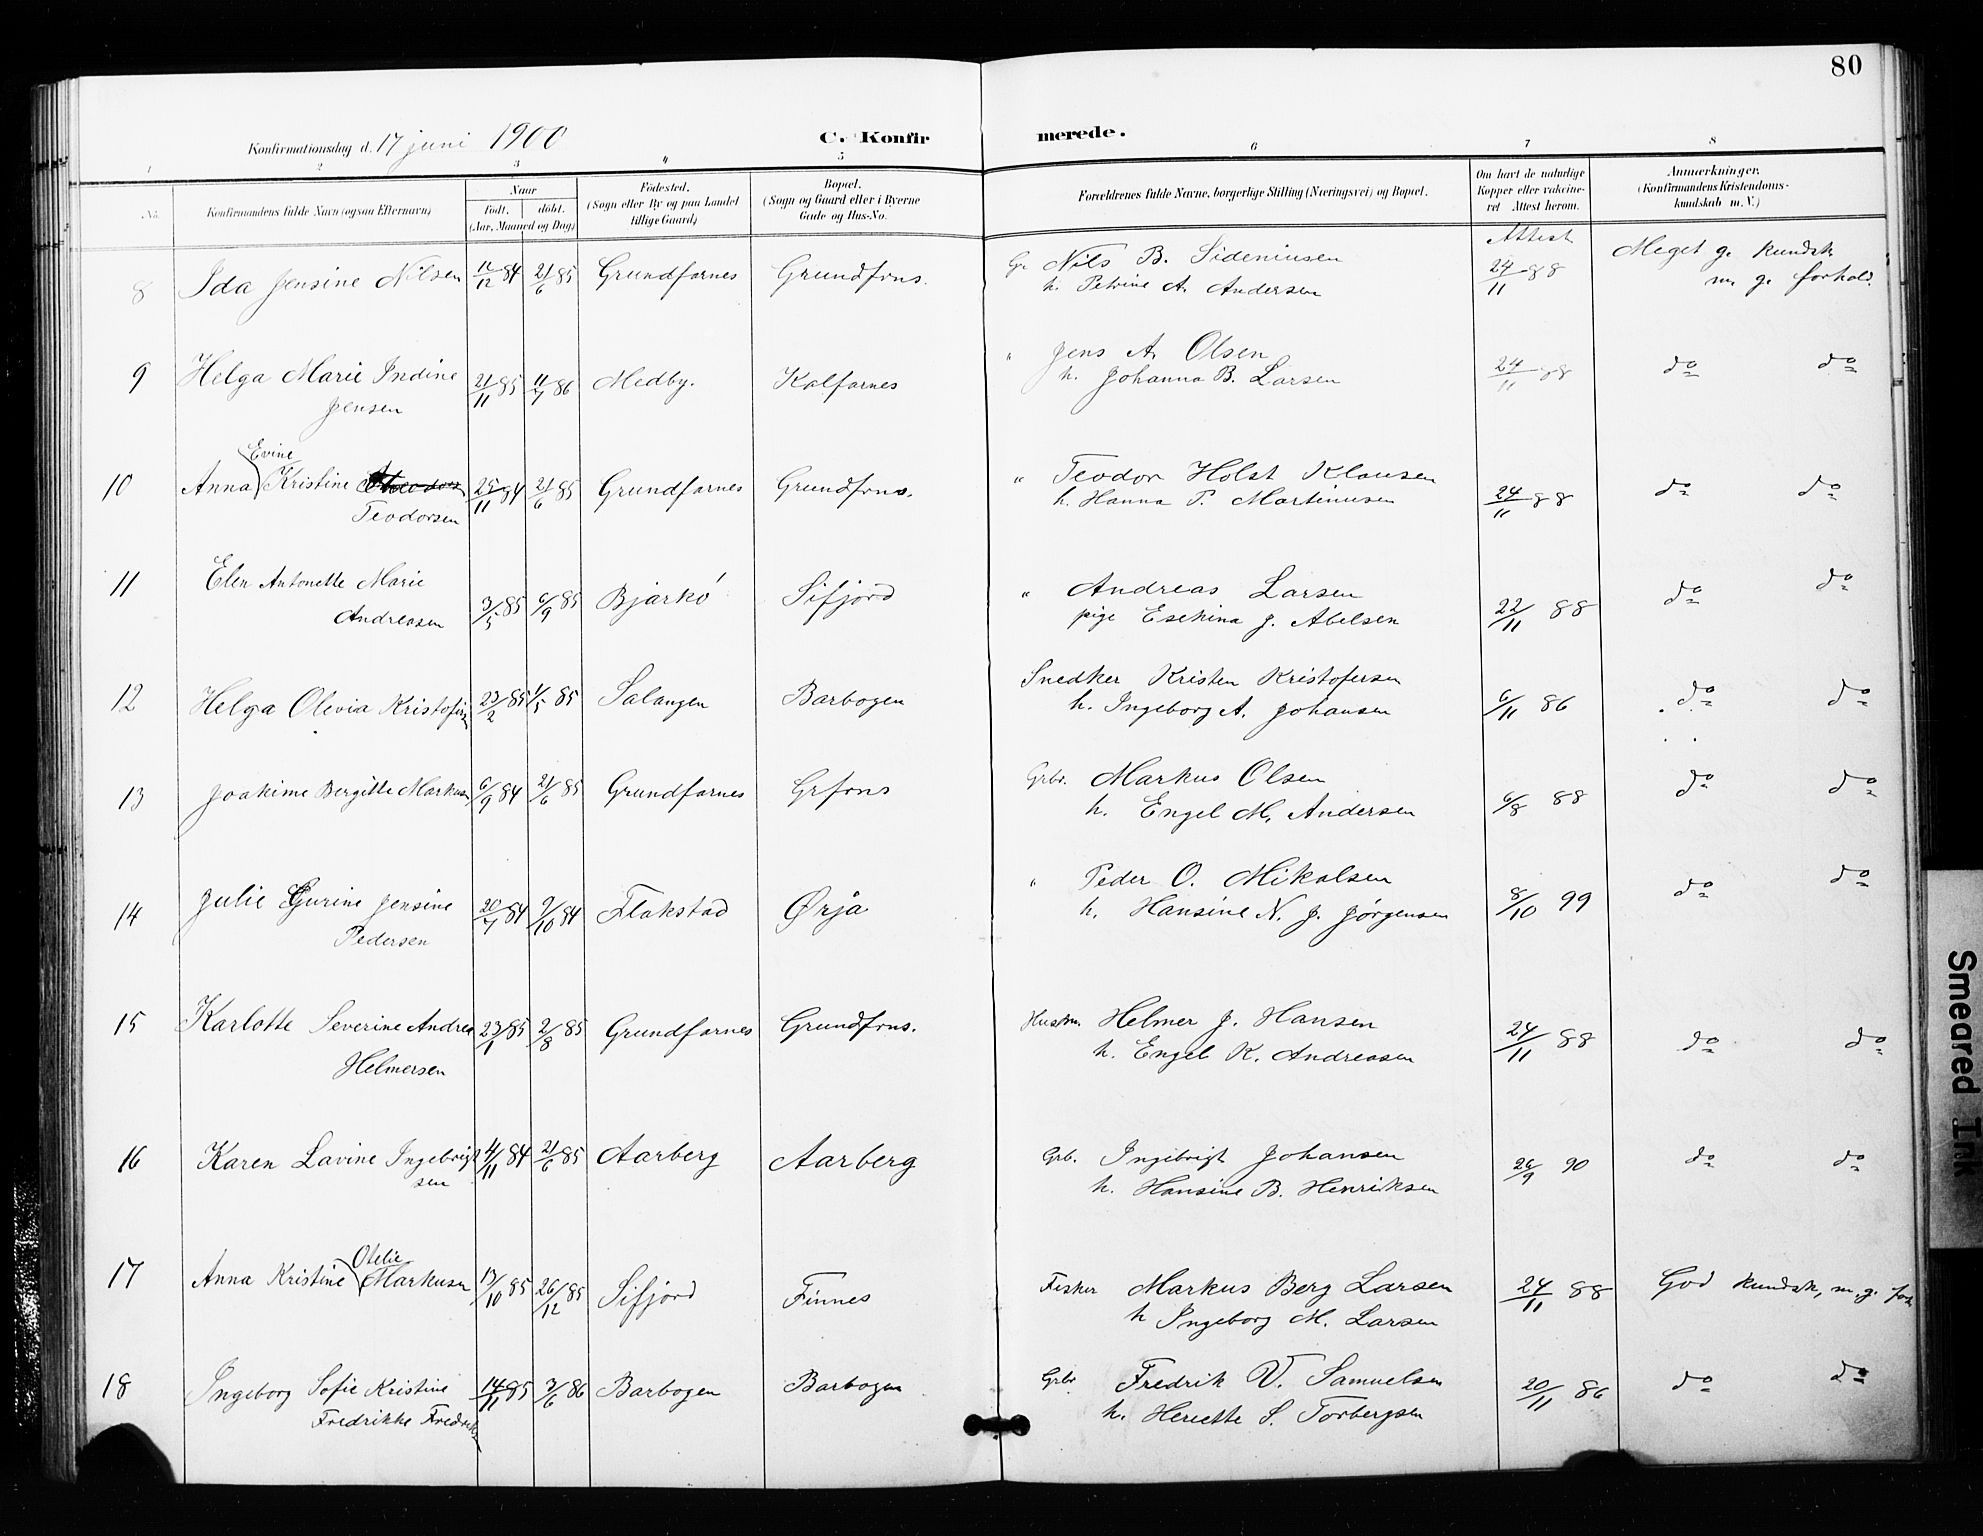 80
Konfirmationsdag d. 17 juni 1900
C. Konfirmerede.
1 2 3 4 5 6 7 8
No.
Konfirmandens fulde Navn (ogsaa Efternavn)
Naar
født. døbt.
(Aar, Maaned og Dag)
Fødested.
(Sogn eller By og paa Landet
tillige Gaard)
Bopæl.
(Sogn og Gaard eller i Byerne
Gade og Hus-No.
Forældrenes fulde Navne, borgerlige Stilling (Næringsvei) og Bopæl.
Om havt de naturlige
Kopper eller vaksine-
ret Attest herom.
Anmerkninger.
(Konfirmandens Kristendoms-
kundskab m. V.)
Attest
8 Ida Jensine Nilsen 12/12 84 21/6 85 Grundfarnes Grundfrns. Gr Nils B. Sideniusen 24/11 88 Meget g. kundsk
h. Petrine A. Andersen m. g. forhold.
9 Helga Marie Indine 21/11 85 11/7 86 Medby. Kalfarnes " Jens A. Olsen 24/11 88 do do
Jensen h. Johanna B. Larsen
Evine
10 Anna Kristine 25/11 84 21/6 85 Grundfarnes Grundfrns. " Teodor Holst Klausen 24/11 88 do do
Teodorsen h. Hanna P. Martinusen
11 Elen Antonette Marie " Andreas Larsen do do
Andreasen 3/5 85 6/9 85 Bjarkö Sifjord pige Esekina J. Abelsen 22/11 88
12 Helga Olevia Kristofersen 23/2 85 1/5 85 Salangen Barbogen Snedker Kristen Kristofersen 6/11 86 do do
h. Ingeborg A. Johansen
13 Joakime Bergitte Markusen 6/9 84 21/6 85 Grundfarnes Grfrns Grbr. Markus Olsen 6/8 88 do do
h. Engel M. Andersen
14 Julie Gurine Jensine 20/7 84 9/10 84 Flakstad Ørja " Peder O. Mikalsen 8/10 99 do do
Pedersen h. Hansine N. J. Jørgensen
15 Karlotte Severine Andrea 23/1 85 2/8 85 Grundfarnes Grundfrns. Husm. Helmer J. Hansen 24/11 88 do do
Helmersen h. Engel K. Andreasen
16 Karen Lavine Ingebrigt 4/11 84 21/6 85 Aarberg Aarberg Grb. Ingebrigt Johansen 26/9 90 do do
sen h. Hansine B. Henriksen
Otelie
17 Anna Kristine Markusen 13/10 85 26/12 85 Sifjord Finnes Fisker Markus Berg Larsen 24/11 88 God kundsk, m. g. forh
h Ingeborg M. Larsen
18 Ingeborg Sofie Kristine 14/11 85 3/6 86 Barbogen Barbogen Grbr Fredrik V. Samuelsen 20/11 86 do do
Fredrikke Fredriksen h. Henriette S. Torbergsen
Smeared Ink